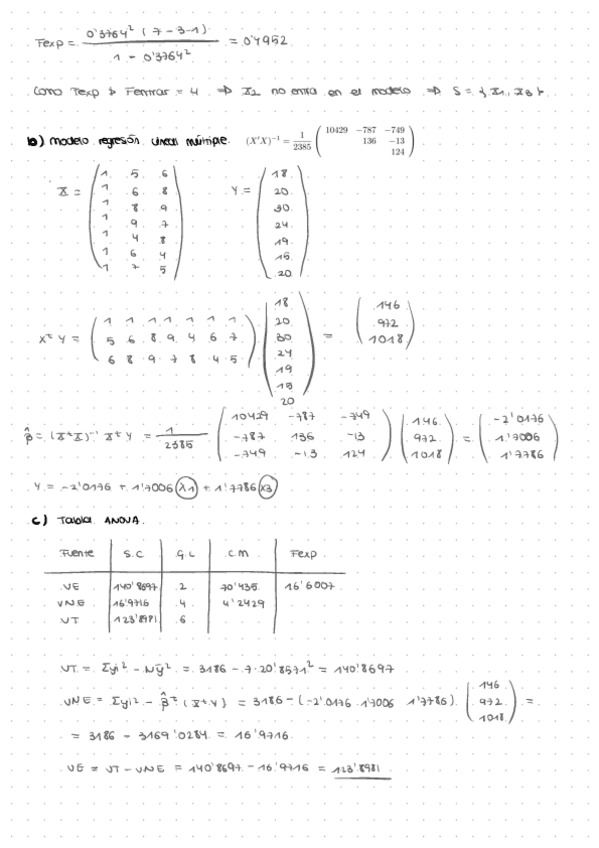 Fexp = 0'3764² (7-3-1) / 1 - 0'3764² = 0'4952
Como Fexp ≯ Fentrar = 4 ⇒ X2 no entra en el modelo ⇒ S = {X1, X3}.
b) modelo regresión lineal múltiple. (X'X)⁻¹ = 1/2385 ( 10429 -787 -749
136 -13
124 )
X = ( 1 5 6 Y = ( 18
1 6 8 20
1 8 9 30
1 9 7 24
1 4 8 19
1 6 4 15
1 7 5 ) 20 )
XᵗY = ( 1 1 1 1 1 1 1
5 6 8 9 4 6 7
6 8 9 7 8 4 5 ) ( 18
20
30
24
19
15
20 ) = ( 146
972
1018 )
β̂ = (XᵗX)⁻¹ XᵗY = 1/2385 ( 10429 -787 -749
-787 136 -13
-749 -13 124 ) ( 146
972
1018 ) = ( -2'0176
1'7006
1'7786 )
Y = -2'0176 + 1'7006 (x1) + 1'7786 (x3)
c) Tabla ANOVA.
Fuente S.C G.L C.M Fexp
VE 140'8697 2 70'435 16'6007
VNE 16'9716 4 4'2429
VT 123'8981 6
VT = Σyi² - Nȳ² = 3186 - 7·20'8571² = 140'8697
VNE = Σyi² - β̂ᵗ(XᵗY) = 3186 - (-2'0176 1'7006 1'7786) · ( 146
972
1018 ) =
= 3186 - 3169'0284 = 16'9716.
VE = VT - VNE = 140'8697 - 16'9716 = 123'8981